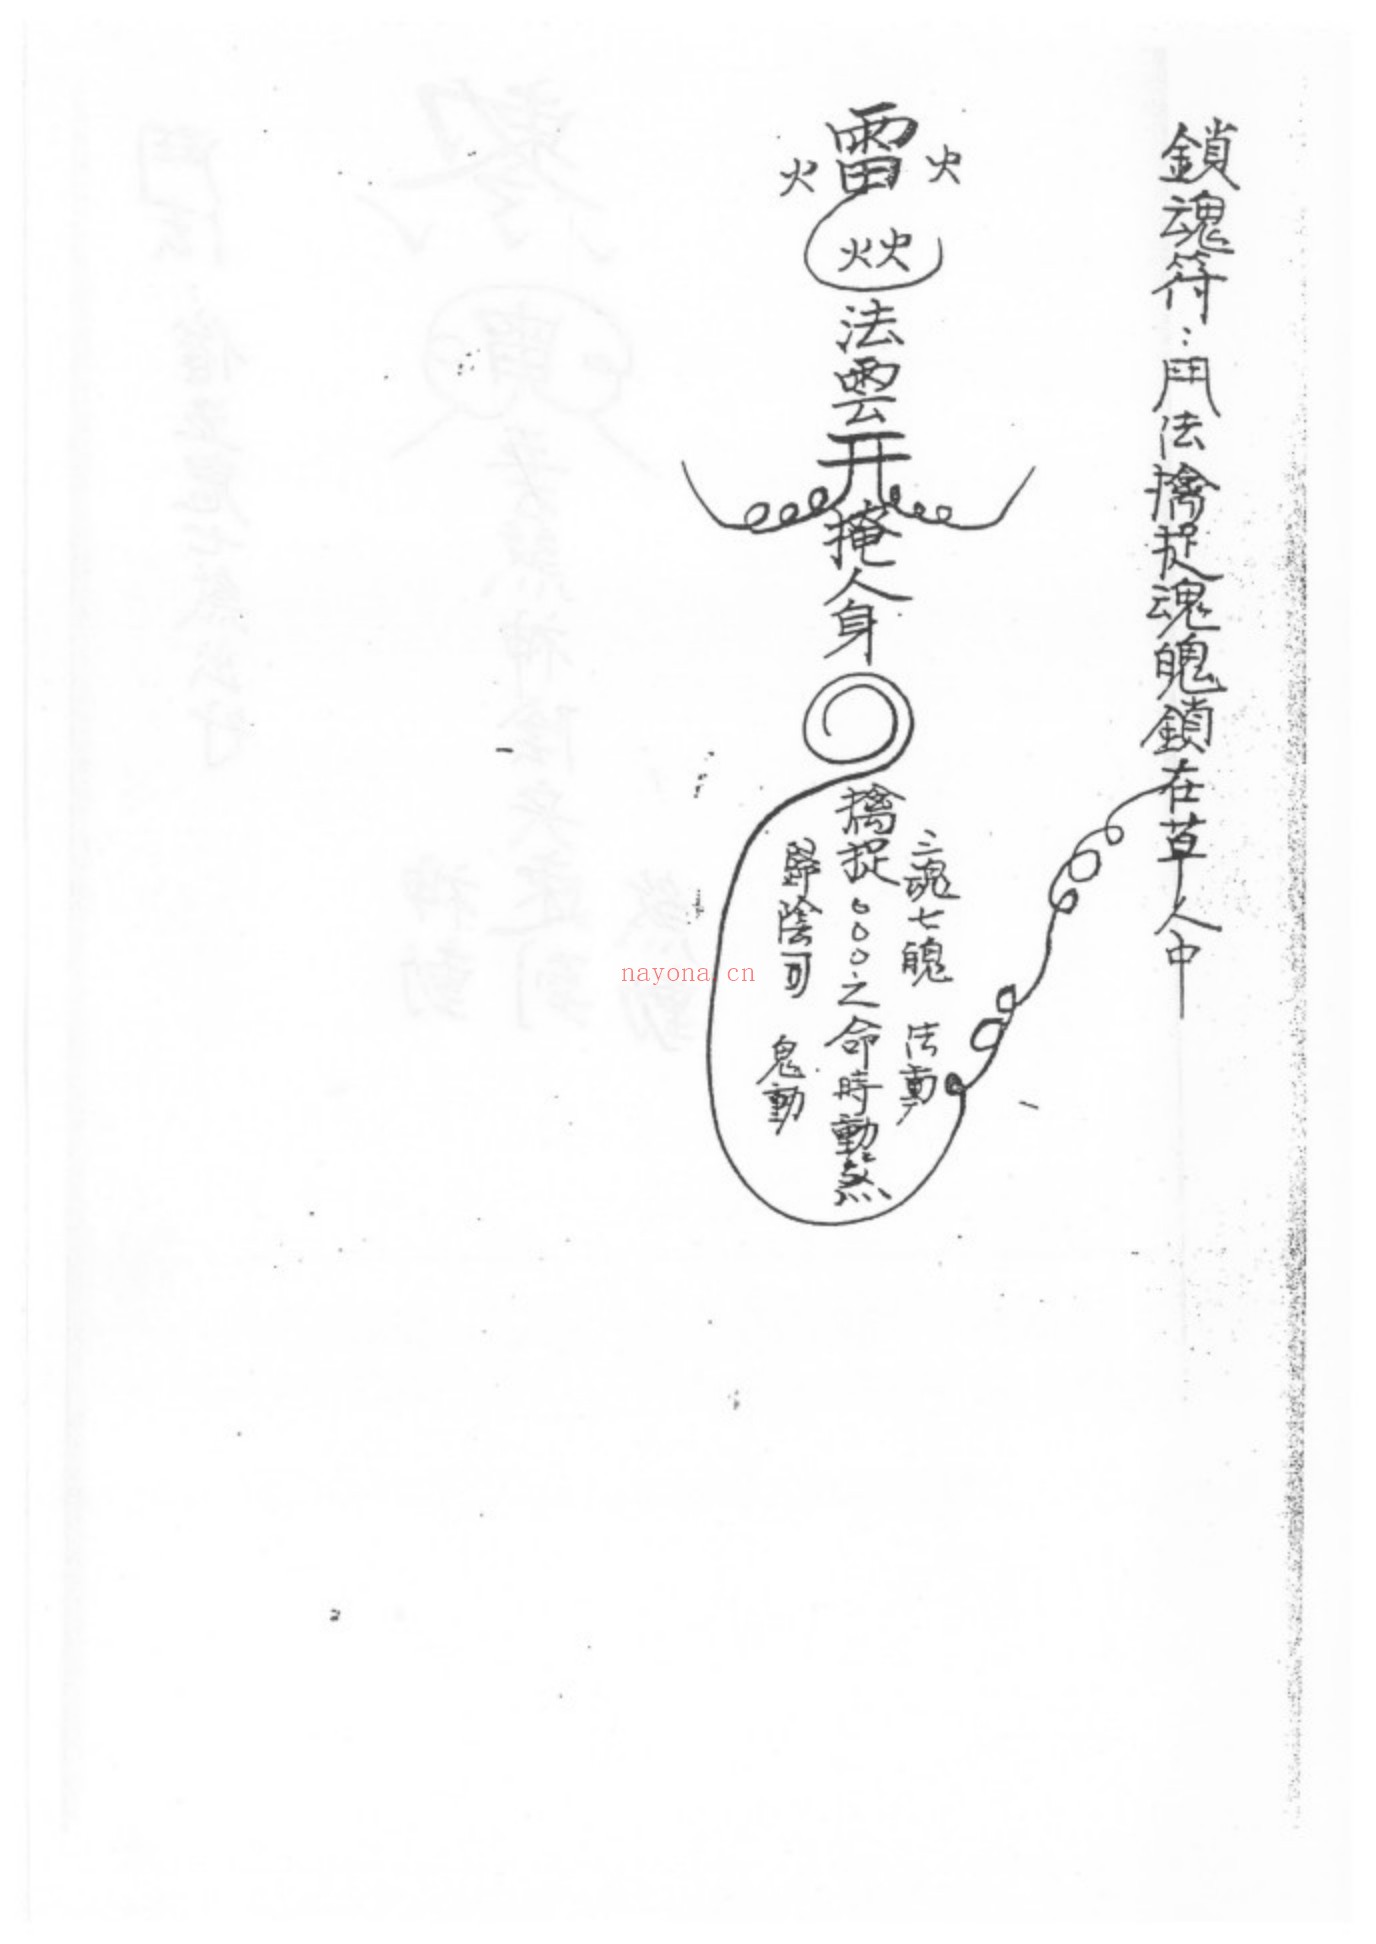 鎖魂符：鬥法擒捉魂魄鎖在草人中
火 雷 火
火火
法雲开掩人身
三魂七魄 法動
擒捉○○○之命時動煞
歸陰司 鬼動
nayona.cn